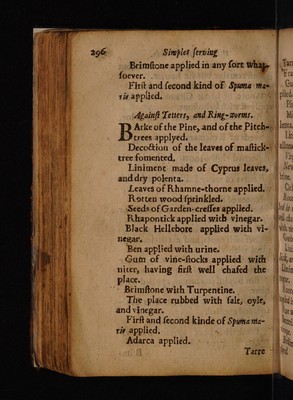 296 Simples serving
Brimſtone applied in any ſort what-
ſoever.
Firſt and ſecond kind of Spuma ma-
ris applied.
Againſt Tetters, and Ring-worms.
BArke of the Pine, and of the Pitch-
trees applyed.
Decoction of the leaves of maſtick-
tree fomented.
Liniment made of Cyprus leaves,
and dry polenta.
Leaves of Rhamne-thorne applied.
Rotten wood ſprinkled.
Seeds of Garden-creſſes applied.
Rhapontick applied with vinegar.
Black Hellebore applied with vi-
negar.
Ben applied with urine.
Gum of vine-ſtocks applied with
niter, having firſt well chafed the
place.
Brimſtone with Turpentine.
The place rubbed with ſalt, oyle,
and vinegar.
Firſt and ſecond kinde of Spuma ma-
ris applied.
Adarca applied.
Tarre